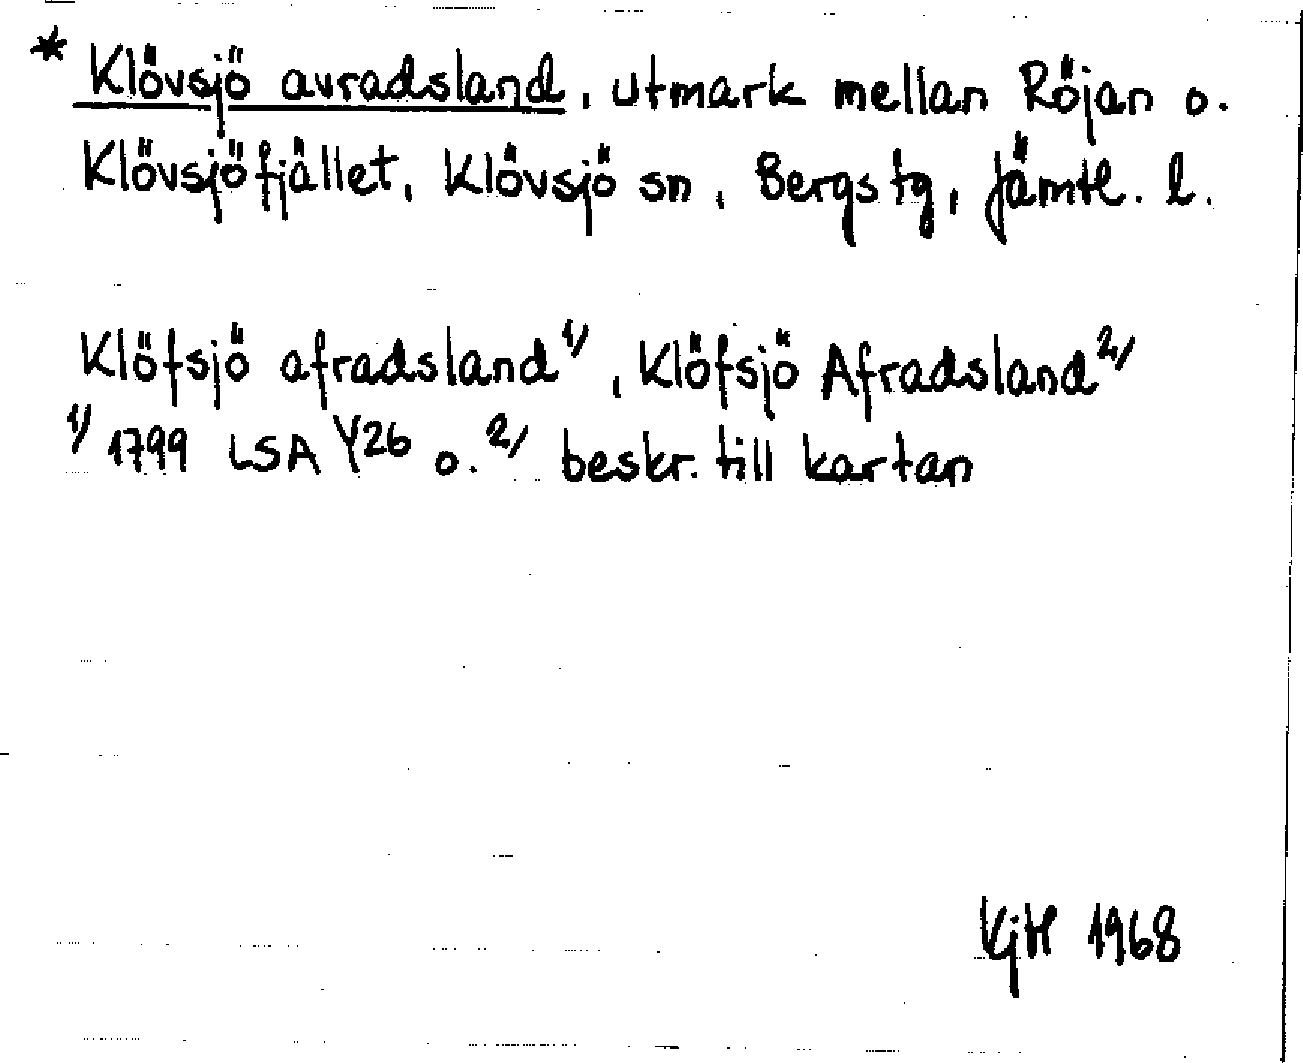 * Klövsjö avradsland, utmark mellan Röjan o.
Klövsjöfjället, Klövsjö sn, Bergs tg, Jämtl. l.
Klöfsjö afradsland 1/, Klöfsjö Afradsland 2/
1/ 1799 LSA Y26 o. 2/ beskr. till kartan
KjH 1968